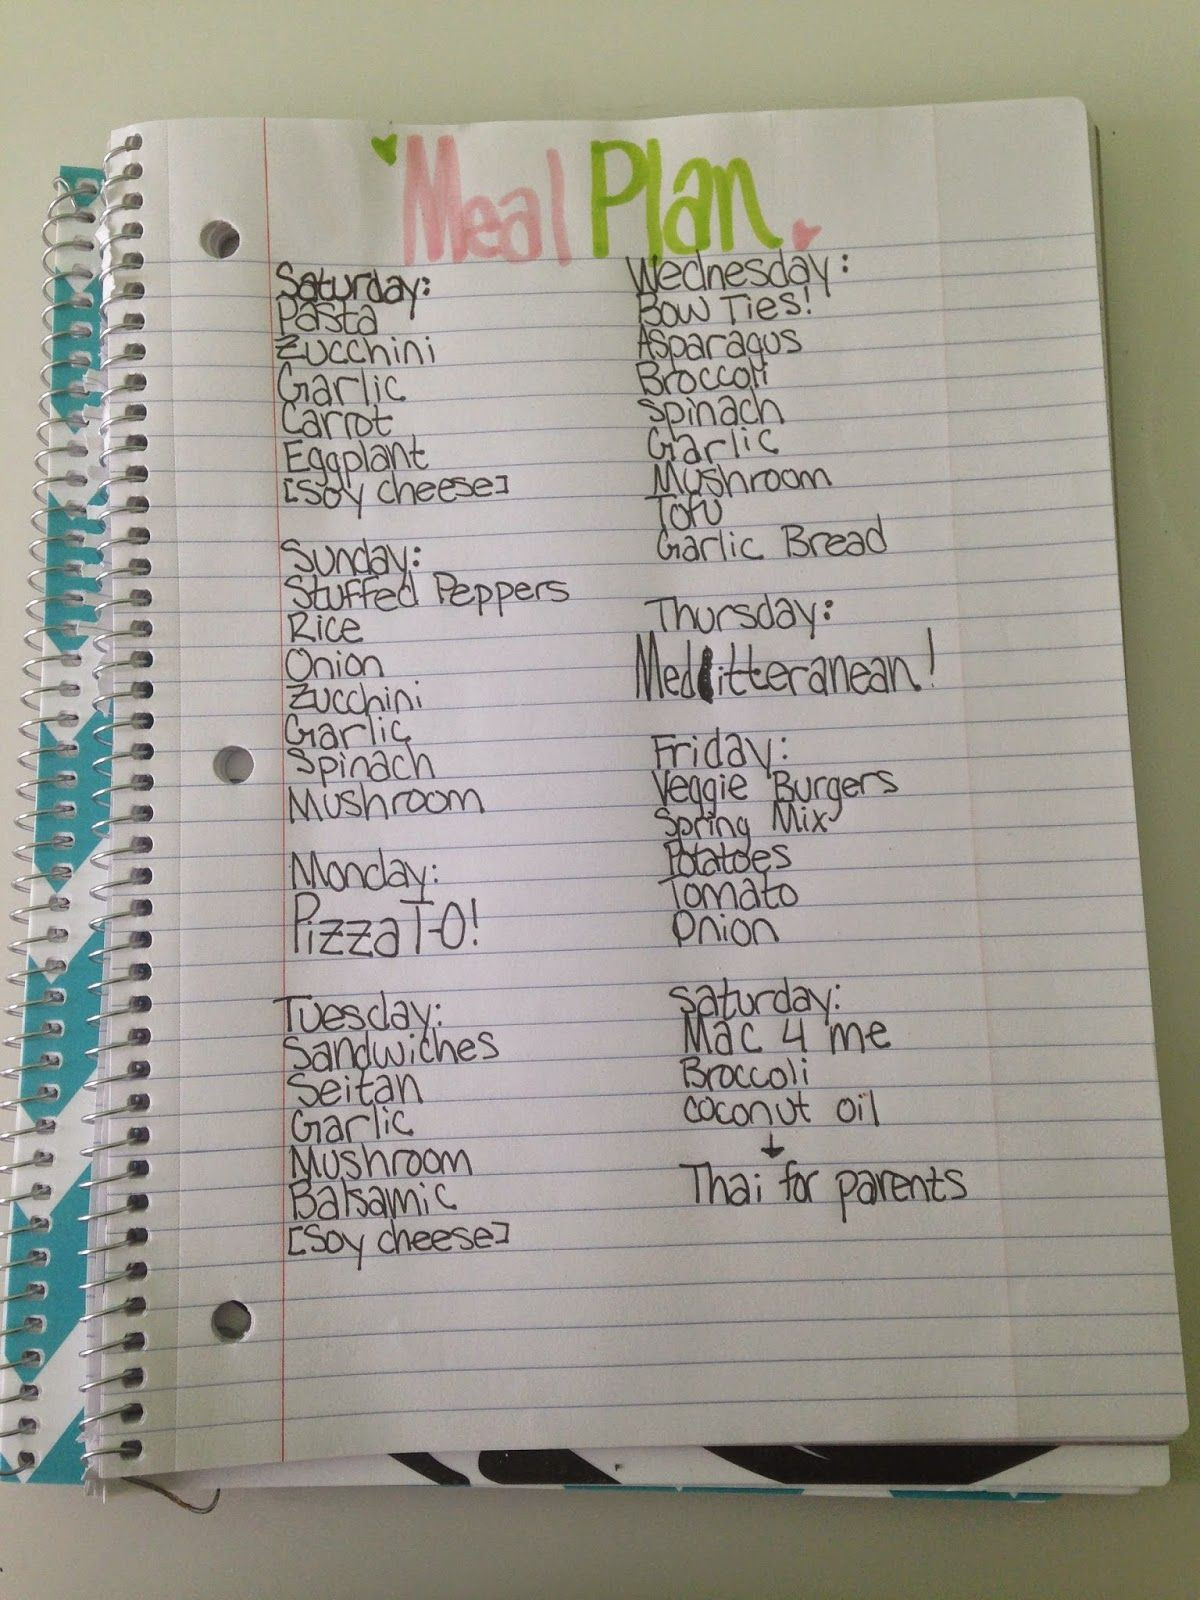 Meal Plan
Saturday:
Pasta
Zucchini
Garlic
Carrot
Eggplant
[Soy cheese]
Sunday:
Stuffed Peppers
Rice
Onion
Zucchini
Garlic
Spinach
Mushroom
Monday:
Pizza T-O!
Tuesday:
Sandwiches
Seitan
Garlic
Mushroom
Balsamic
[Soy cheese]
Wednesday:
Bow Ties!
Asparagus
Broccoli
Spinach
Garlic
Mushroom
Tofu
Garlic Bread
Thursday:
Meditteranean!
Friday:
Veggie Burgers
Spring Mix
Potatoes
Tomato
Onion
Saturday:
Mac 4 me
Broccoli
coconut oil
↓
Thai for parents